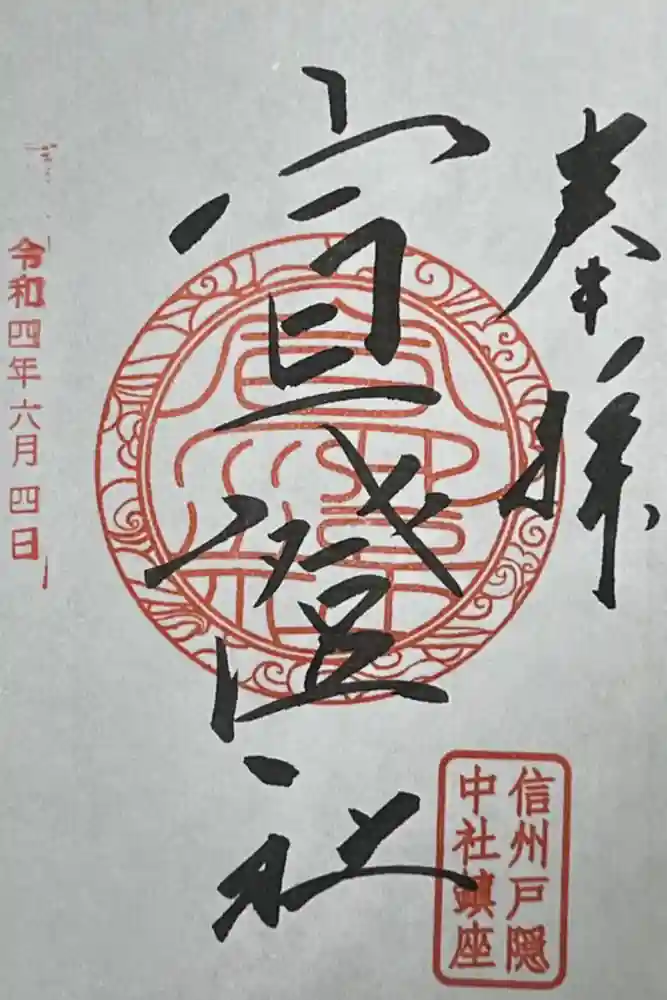 奉拝
信州戸隠
中社鎮座
宣澄社
令和四年六月四日